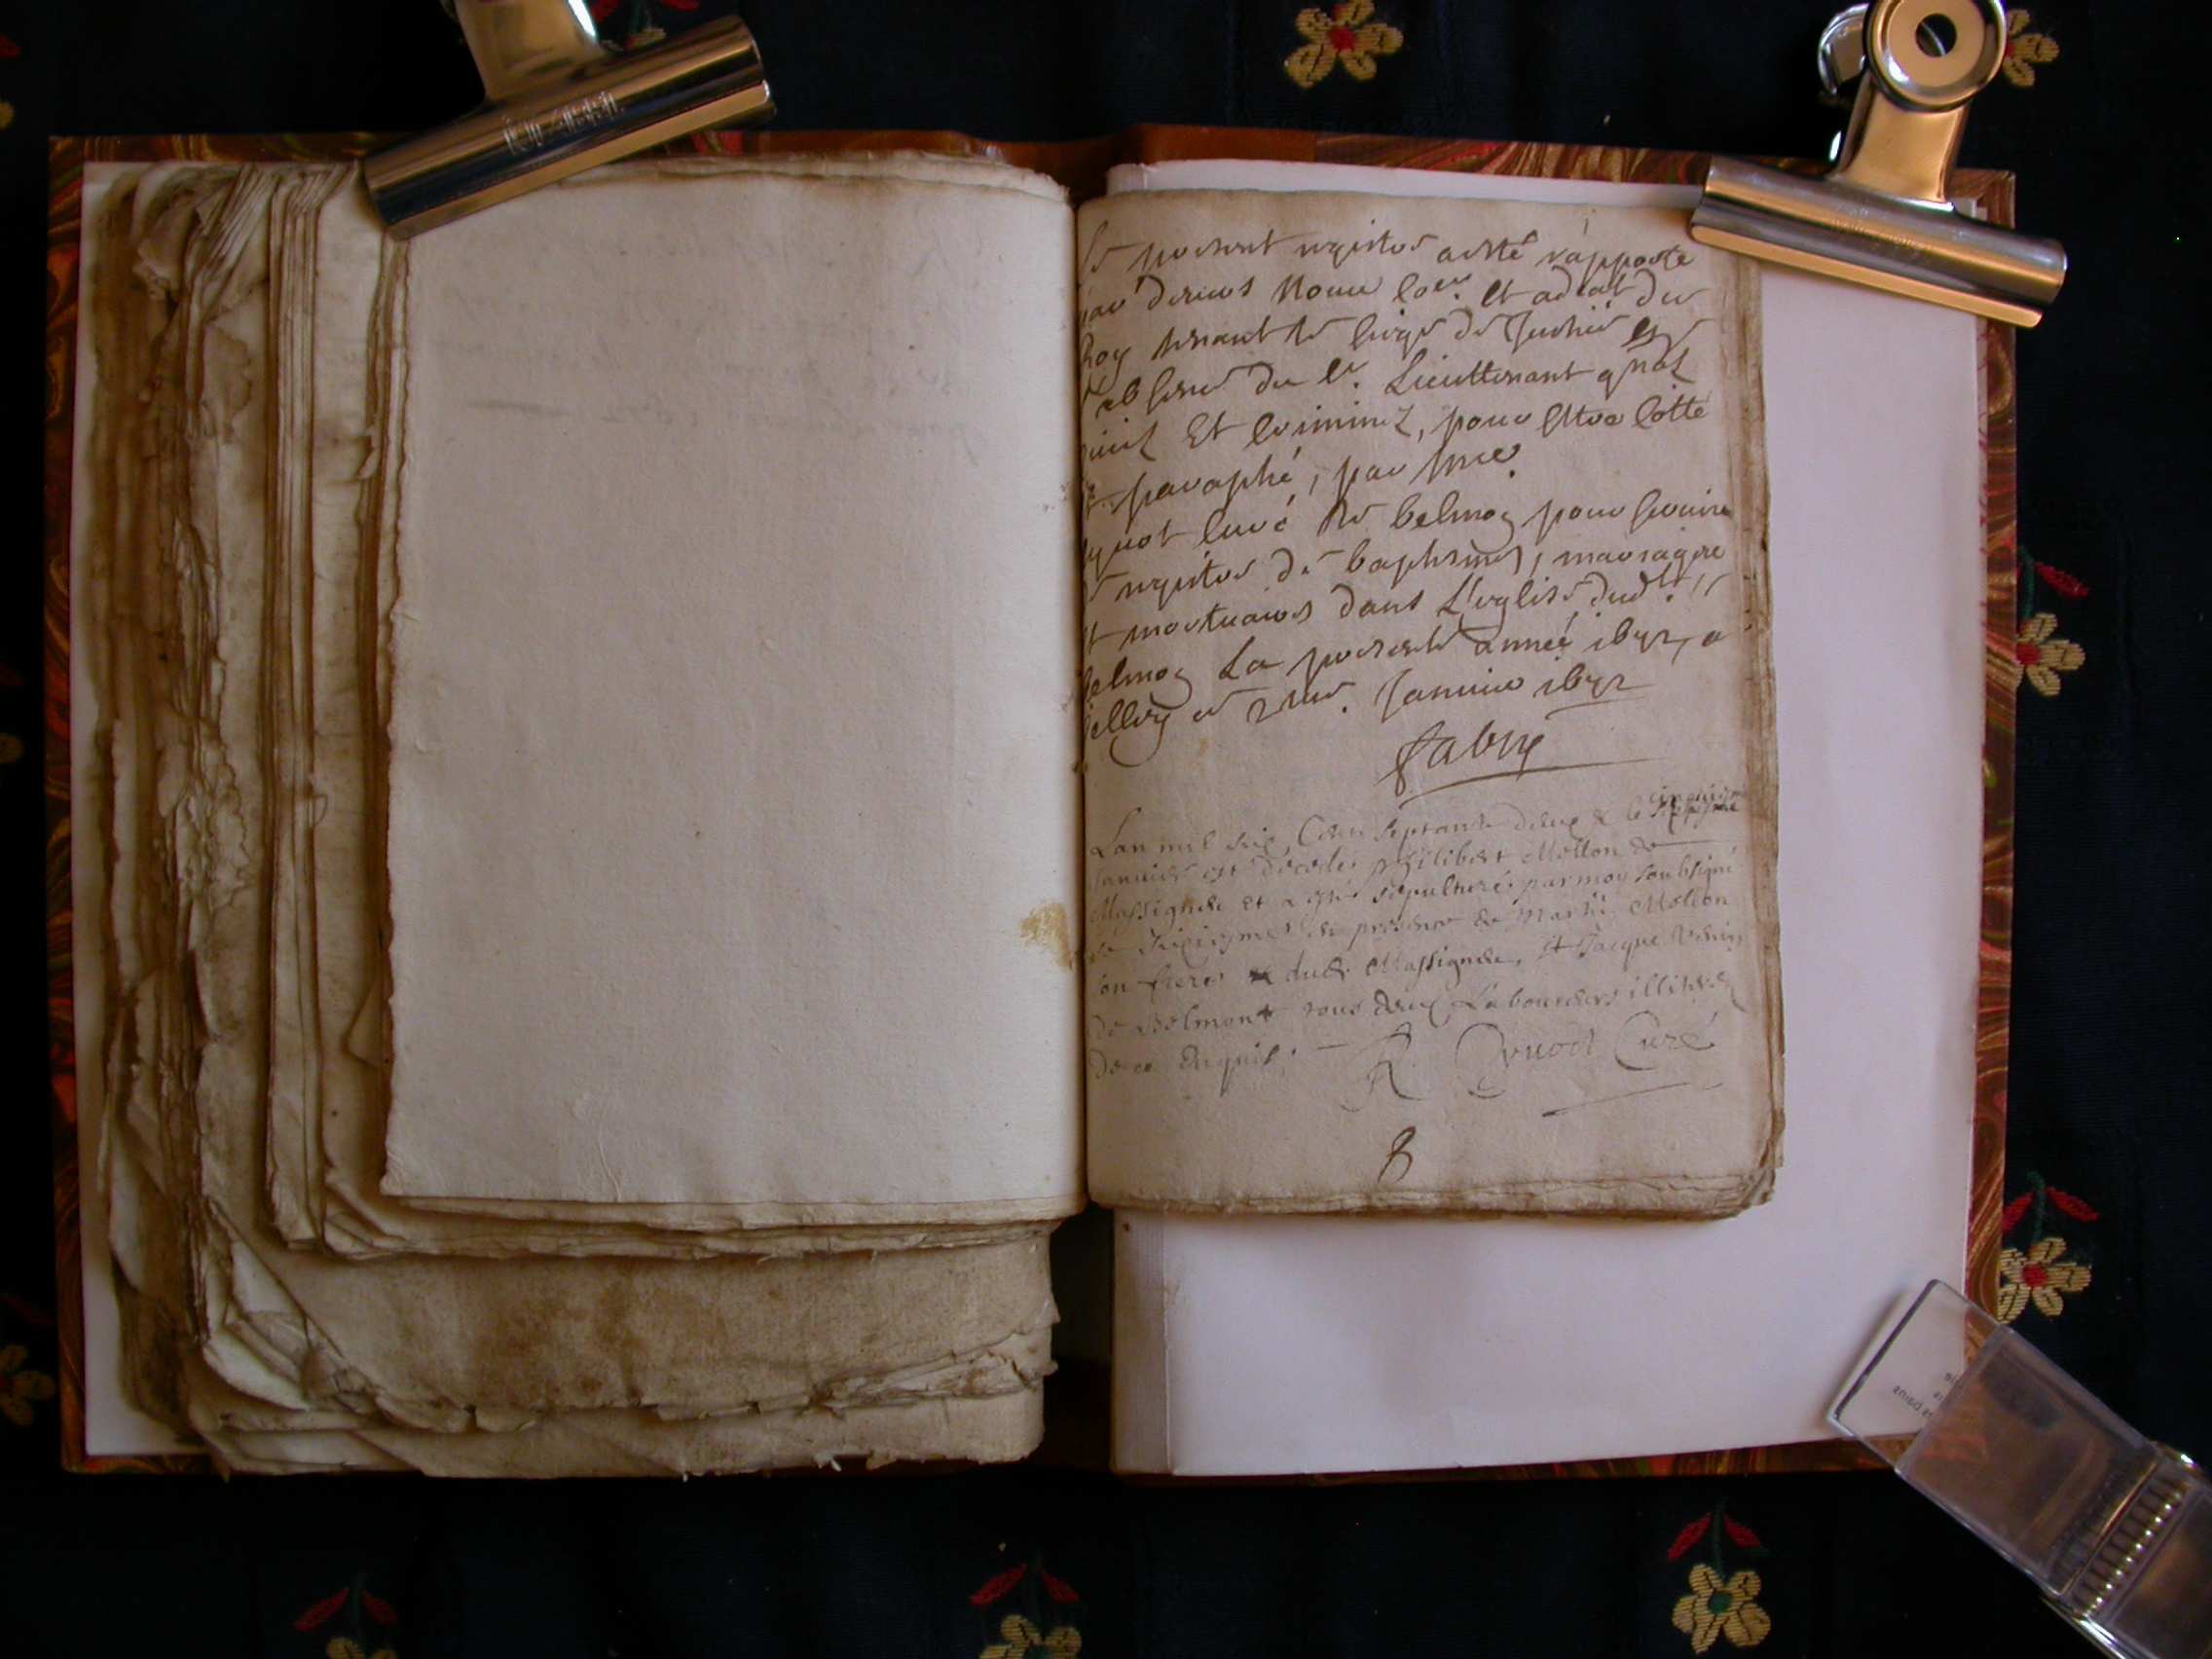 Le present registre a esté rapporté
par devens Nous con.er et advat du
Roy tenant le siege de Justice en
l'absence du sr. Lieuttenant gnal
civil Et criminel, pour Estre cotté
et paraphé, par Mre
Curé de belmog pour servire
de registre de baptesmes, mariages
et mortuaires dans L'eglise dudt.
belmog La presente année 1672, a
belley ce 2me. Janvier 1672
fabry
cinquiesme
Lan mil six Cens septante deux & le
Janvier est decedé philibert Mollon de
Massignieu et a esté sepulturé par moy soubsigné
le sixiesme en presence de Mollon
son frere dud. Massignieu, et Jacque
de Belmont tous deux Laboureurs illiterez
de ce Enquis.
R. Curé
8